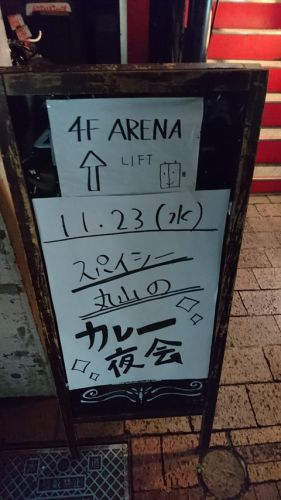 4F ARENA
LIFT
11.23(水)
スパイシー
丸山の
カレー
夜会